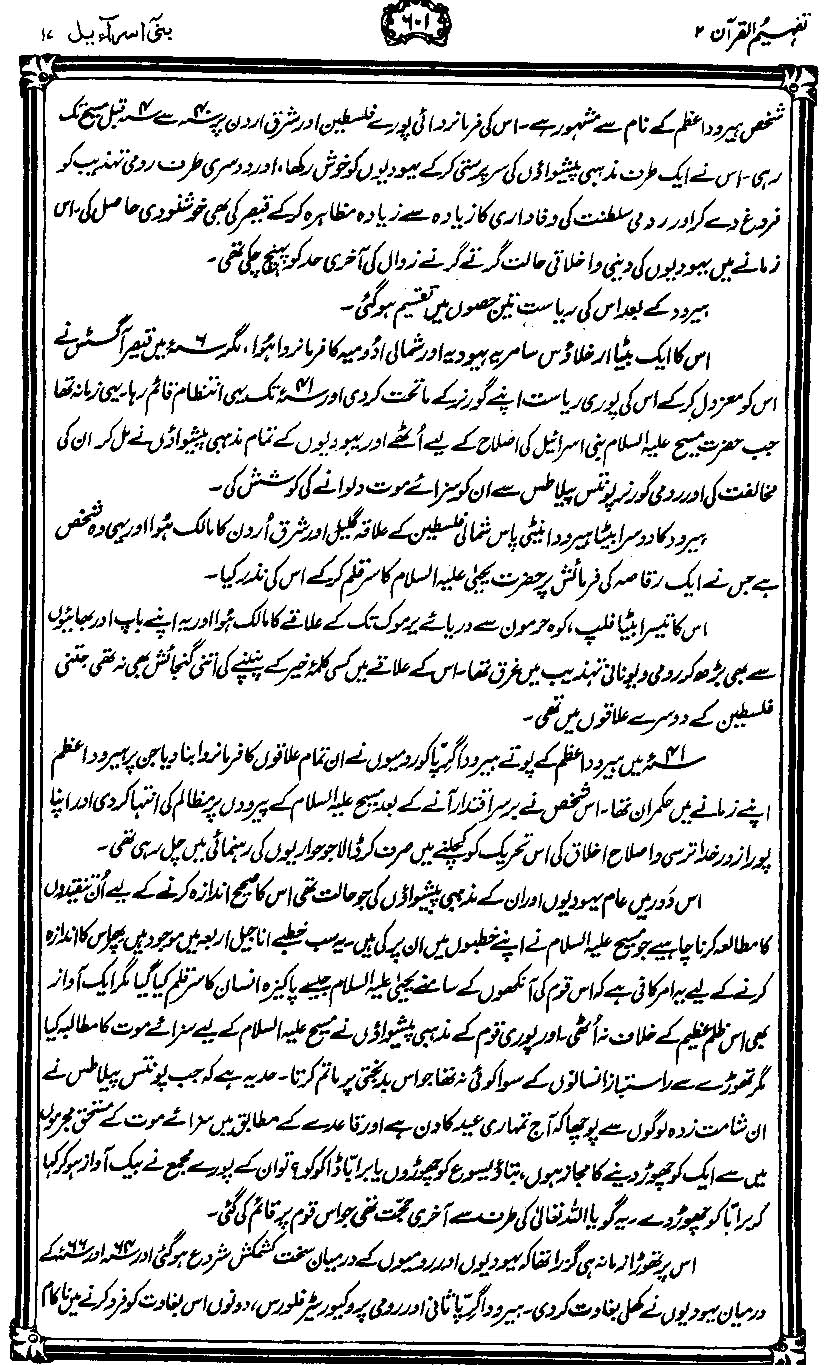 تفہیم القرآن ۲
۶۰۱
بنی اسرآءیل ۱۷
شخص ہیرود اعظم کے نام سے مشہور ہے۔ اس کی فرمانروائی پورے فلسطین اور شرق اردن پر ۴۰ سے ۴ قبل مسیح تک
رہی۔ اس نے ایک طرف مذہبی پیشواؤں کی سرپرستی کر کے یہودیوں کو خوش رکھا، اور دوسری طرف رومی تہذیب کو
فروغ دے کر اور رومی سلطنت کی وفاداری کا زیادہ سے زیادہ مظاہرہ کر کے قیصر کی بھی خوشنودی حاصل کی۔ اس
زمانے میں یہودیوں کی دینی و اخلاقی حالت گرتے گرتے زوال کی آخری حد کو پہنچ چکی تھی۔
ہیرود کے بعد اس کی ریاست تین حصوں میں تقسیم ہو گئی۔
اس کا ایک بیٹا ارخلاؤس سامریہ یہودیہ اور شمالی ادومیہ کا فرمانروا ہُوا، مگر ۶ء میں قیصر آگسٹس نے
اس کو معزول کر کے اس کی پوری ریاست اپنے گورنر کے ماتحت کر دی اور ۴۱ء تک یہی انتظام قائم رہا۔ یہی زمانہ تھا
جب حضرت مسیح علیہ السلام بنی اسرائیل کی اصلاح کے لیے اُٹھے اور یہودیوں کے تمام مذہبی پیشواؤں نے مل کر ان کی
مخالفت کی اور رومی گورنر پونتس پیلاطس سے ان کو سزائے موت دلوانے کی کوشش کی۔
ہیرود کا دوسرا بیٹا ہیرود انیٹی پاس شمالی فلسطین کے علاقہ گلیل اور شرق اُردن کا مالک ہُوا اور یہی وہ شخص
ہے جس نے ایک رقاصہ کی فرمائش پر حضرت یحییٰ علیہ السلام کا سر قلم کر کے اس کی نذر کیا۔
اس کا تیسرا بیٹا فلپ، کوہ حرمون سے دریائے یرموک تک کے علاقے کا مالک ہُوا اور یہ اپنے باپ اور بھائیوں
سے بھی بڑھ کر رومی و یونانی تہذیب میں غرق تھا۔ اس کے علاقے میں کسی کلمۂ خیر کے پنپنے کی اتنی گنجائش بھی نہ تھی جتنی
فلسطین کے دوسرے علاقوں میں تھی۔
۴۱ء میں ہیرود اعظم کے پوتے ہیرود اگرپا کو رومیوں نے ان تمام علاقوں کا فرمانروا بنا دیا جن پر ہیرود اعظم
اپنے زمانے میں حکمران تھا۔ اس شخص نے برسرِ اقتدار آنے کے بعد مسیح علیہ السلام کے پیرووں پر مظالم کی انتہا کر دی اور اپنا
پورا زور خدا ترسی و اصلاح اخلاق کی اس تحریک کو کچلنے میں صرف کر ڈالا جو حواریوں کی رہنمائی میں چل رہی تھی۔
اس دَور میں عام یہودیوں اور ان کے مذہبی پیشواؤں کی جو حالت تھی اس کا صحیح اندازہ کرنے کے لیے اُن تنقیدوں
کا مطالعہ کرنا چاہیے جو مسیح علیہ السلام نے اپنے خطبوں میں ان پر کی ہیں۔ یہ سب خطبے اناجیل اربعہ میں موجود ہیں۔ پھر اس کا اندازہ
کرنے کے لیے یہ امر کافی ہے کہ اس قوم کی آنکھوں کے سامنے یحییٰ علیہ السلام جیسے پاکیزہ انسان کا سر قلم کیا گیا مگر ایک آواز
بھی اس ظلم عظیم کے خلاف نہ اُٹھی۔ اور پوری قوم کے مذہبی پیشواؤں نے مسیح علیہ السلام کے لیے سزائے موت کا مطالبہ کیا
مگر تھوڑے سے راستباز انسانوں کے سوا کوئی نہ تھا جو اس بدبختی پر ماتم کرتا۔ حد یہ ہے کہ جب پونتس پیلاطس نے
ان شامت زدہ لوگوں سے پوچھا کہ آج تمہاری عید کا دن ہے اور قاعدے کے مطابق میں سزائے موت کے مستحق مجرموں
میں سے ایک کو چھوڑ دینے کا مجاز ہوں، بتاؤ یسوع کو چھوڑوں یا برابّا ڈاکو کو؟ تو ان کے پورے مجمع نے بیک آواز ہو کر کہا
کہ برابّا کو چھوڑ دے۔ یہ گویا اللہ تعالیٰ کی طرف سے آخری حجت تھی جو اس قوم پر قائم کی گئی۔
اس پر تھوڑا زمانہ ہی گزرا تھا کہ یہودیوں اور رومیوں کے درمیان سخت کشمکش شروع ہو گئی اور ۶۴ء اور ۶۶ء کے
درمیان یہودیوں نے کھلی بغاوت کر دی۔ ہیرود اگرپا ثانی اور رومی پروکیوریٹر فلورس، دونوں اس بغاوت کو فرو کرنے میں ناکام